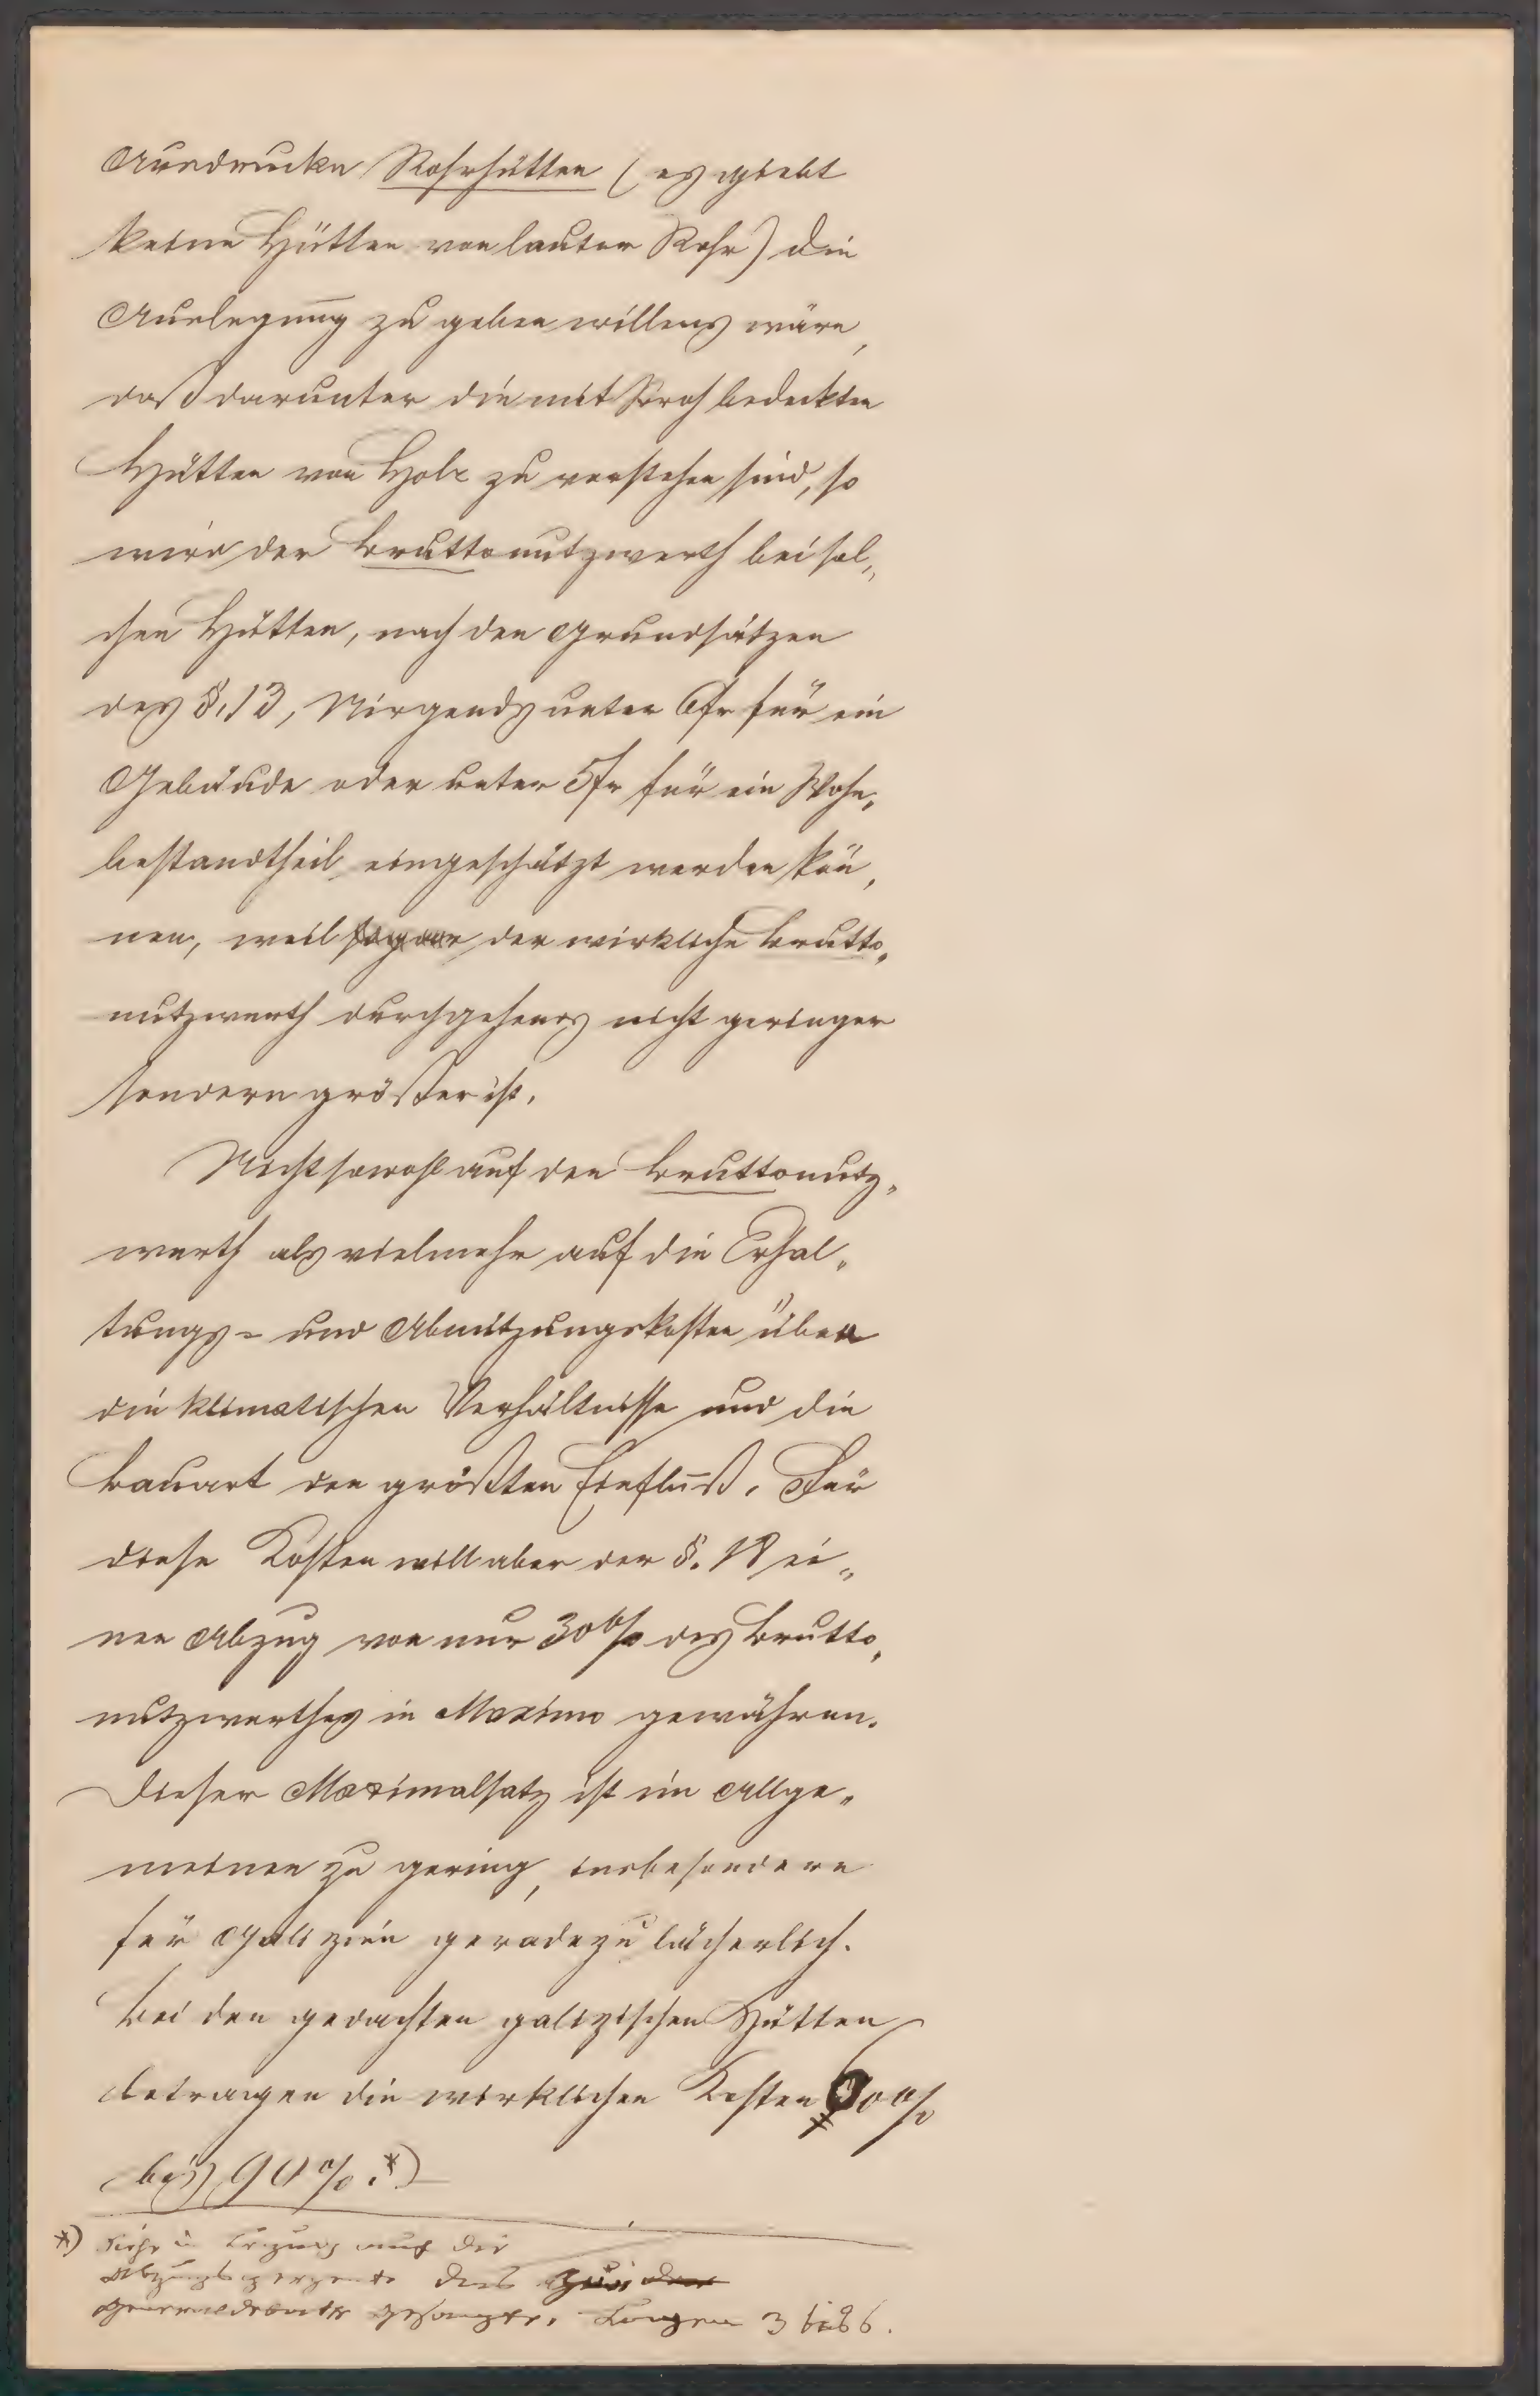 Ausdrucke Rohrhütten (es giebt
keine Hütten von lauter Rohr) die
Auslegung zu geben willens wäre,
daß darunter die mit Stroh bedeckten
Hütten von Holz zu verstehen sind, so
wird der Bruttonutzwerth bei sol„
chen Hütten, nach den Grundsätzen
des §. 13, Nirgends unter 6fr für ein
Gebäude oder unter 5fr für ein Wohn„
bestandtheil eingeschätzt werden kön„
nen, weil sogar der wirkliche Brutto„
nutzwerth durchgehends nicht geringer
sondern größer ist.
Nicht sowohl auf den Bruttonutz„
werth als vielmehr auf die Erhal„
tungs= und Abnützungskosten üben
die klimatischen Verhältnisse und die
Bauart den größten Einfluß. Für
diese Kosten will aber der §. 18 ei„
nen Abzug von nur 30% des Brutto„
nutzwerthes in Maximo gewähren.
Dieser Maximalsatz ist im Allge„
meinen zu gering, insbesondere
für Galizien geradezu lächerlich.
Bei den gedachten galizischen Hütten
betragen die wirklichen Kosten 60%
bis 90%.*)
*) Siehe in Bezug auf die
Abzugsperzente das
3 bis 6.